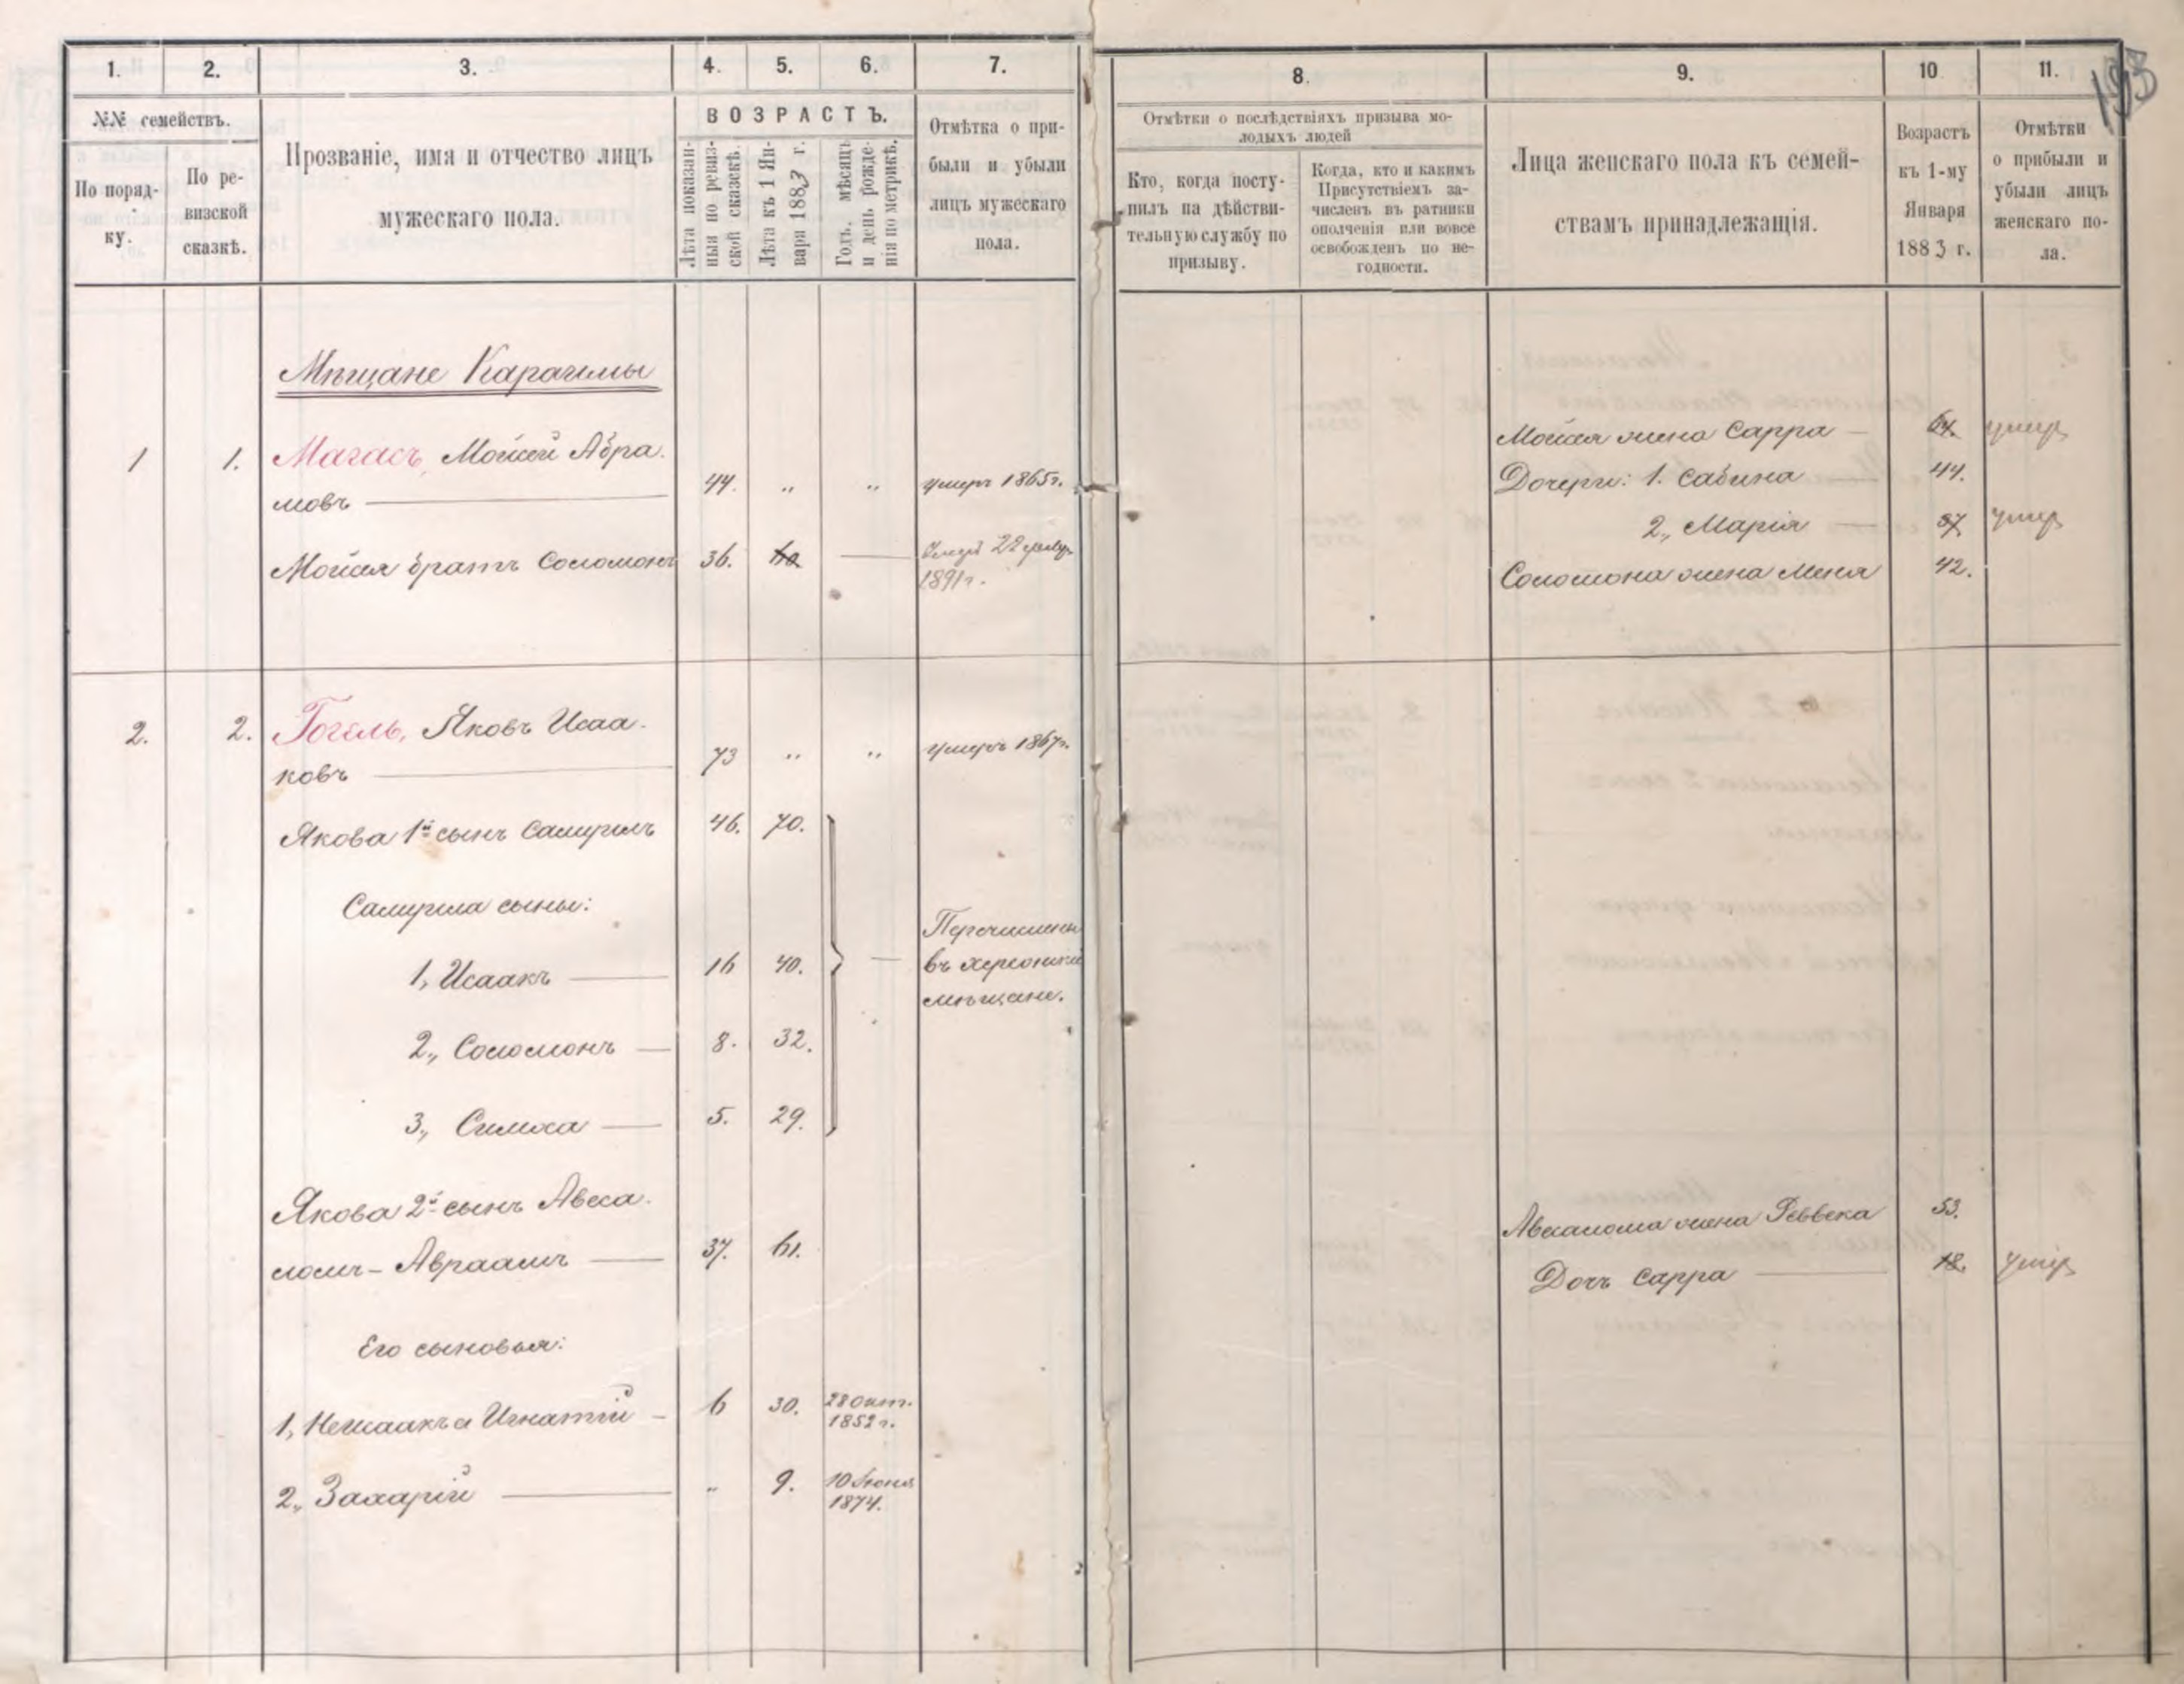 1. 2. 3. 4. 5. 6. 7.
№№ семействъ.
По поряд-
ку.
По ре-
визской
сказкѣ.
Прозваніе, имя и отчество лицъ
мужескаго пола.
ВОЗРАСТЪ.
Лѣта показан-
ныя по ревиз-
ской сказкѣ.
Лѣта къ 1 Ян-
варя 1883 г.
Годъ, мѣсяцъ
и день рожде-
нія по метрикѣ.
Отмѣтка о при-
были и убыли
лицъ мужескаго
пола.
Мѣщане Караимы
1 1. Магасъ, Мойсей Абра-
мовъ 44. „ „ умеръ 1865 г.
Мойсея братъ Соломонъ 36. 60 — Умеръ 22
1891 г.
2. 2. Гогель, Яковъ Исаа-
ковъ 73 „ „ умеръ 1867 г.
Якова 1й сынъ Самуилъ 46. 70.
Самуила сыны:
1, Исаакъ — 16 40. —
2„ Соломонъ — 8. 32.
3„ Симха — 5. 29.
Перечислены
въ херсонскіе
мѣщане.
Якова 2й сынъ Авеса-
ломъ - Авраамъ — 37. 61.
Его сыновья:
1, Исаакъ Игнатій - 6 30. 28 Окт.
1852 г.
2„ Захарій — „ 9. 10 Іюня
1874.
8. 9. 10 11.
193
Отмѣтки о послѣдствіяхъ призыва мо-
лодыхъ людей
Кто, когда посту-
пилъ на дѣйстви-
тельную службу по
призыву.
Когда, кто и какимъ
Присутствіемъ за-
численъ въ ратники
ополченія или вовсе
освобожденъ по не-
годности.
Лица женскаго пола къ семей-
ствамъ принадлежащія.
Возрастъ
къ 1-му
Января
1883 г.
Отмѣтки
о прибыли и
убыли лицъ
женскаго по-
ла.
Мойсея жена Сарра — 64. умер
Дочери: 1. Сабина 44.
2„ Марія — 37 умер
Соломона жена Меня 42.
Авесалома жена Реввека 53.
Дочь Сарра — 18. умер